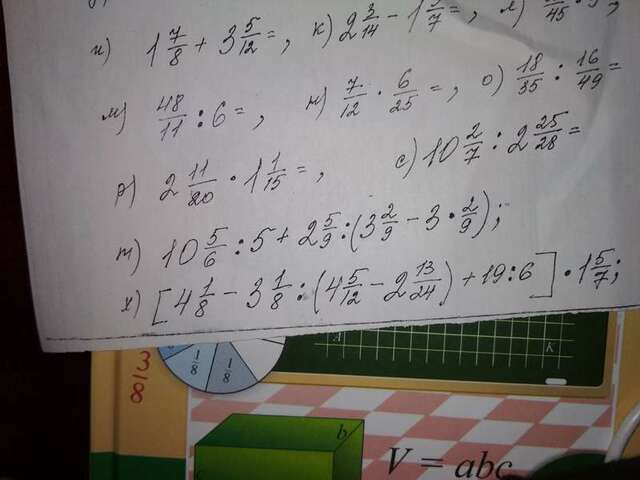 и) 1 7/8 + 3 5/12 =, к) 2 3/14 − 1 5/7 =, л)
м) 48/11 : 6 =, н) 7/12 · 6/25 =, о) 18/35 : 16/49 =
р) 2 11/20 · 1 1/15 =, с) 10 2/7 : 2 25/28 =
т) 10 5/6 : 5 + 2 5/9 : (3 2/9 − 3 · 2/9);
х) [4 1/8 − 3 1/8 : (4 5/12 − 2 13/24) + 19 : 6] · 1 5/7;
1/8
1/8
3/8
b
V = abc